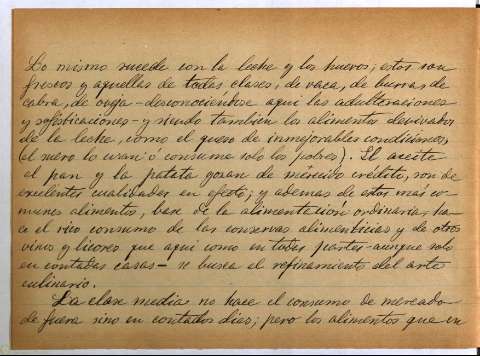 Lo mismo sucede con la leche y los huevos; estos son
frescos y aquellas de todas clases, de vaca, de burra, de
cabra, de oveja - desconociendose aqui las adulteraciones
y sofisticaciones - y siendo tambien los alimentos derivados
de la leche, como el queso de inmejorables condiciones
(el suero lo usan ó consume solo los pobres). El aceite
el pan y la patata gozan de mérecido credito, son de
excelentes cualidades en efecto; y ademas de estos mas co-
munes alimentos, base de la alimentación ordinaria, ha-
ce el rico consumo de las conservas alimenticias y de otros
vinos y licores que aqui como en todas partes - aunque solo
en contadas casas - se busca el refinamiento del arte
culinario.
La clase media no hace el consumo de mercado
de fuera sino en contados dias; pero los alimentos que en